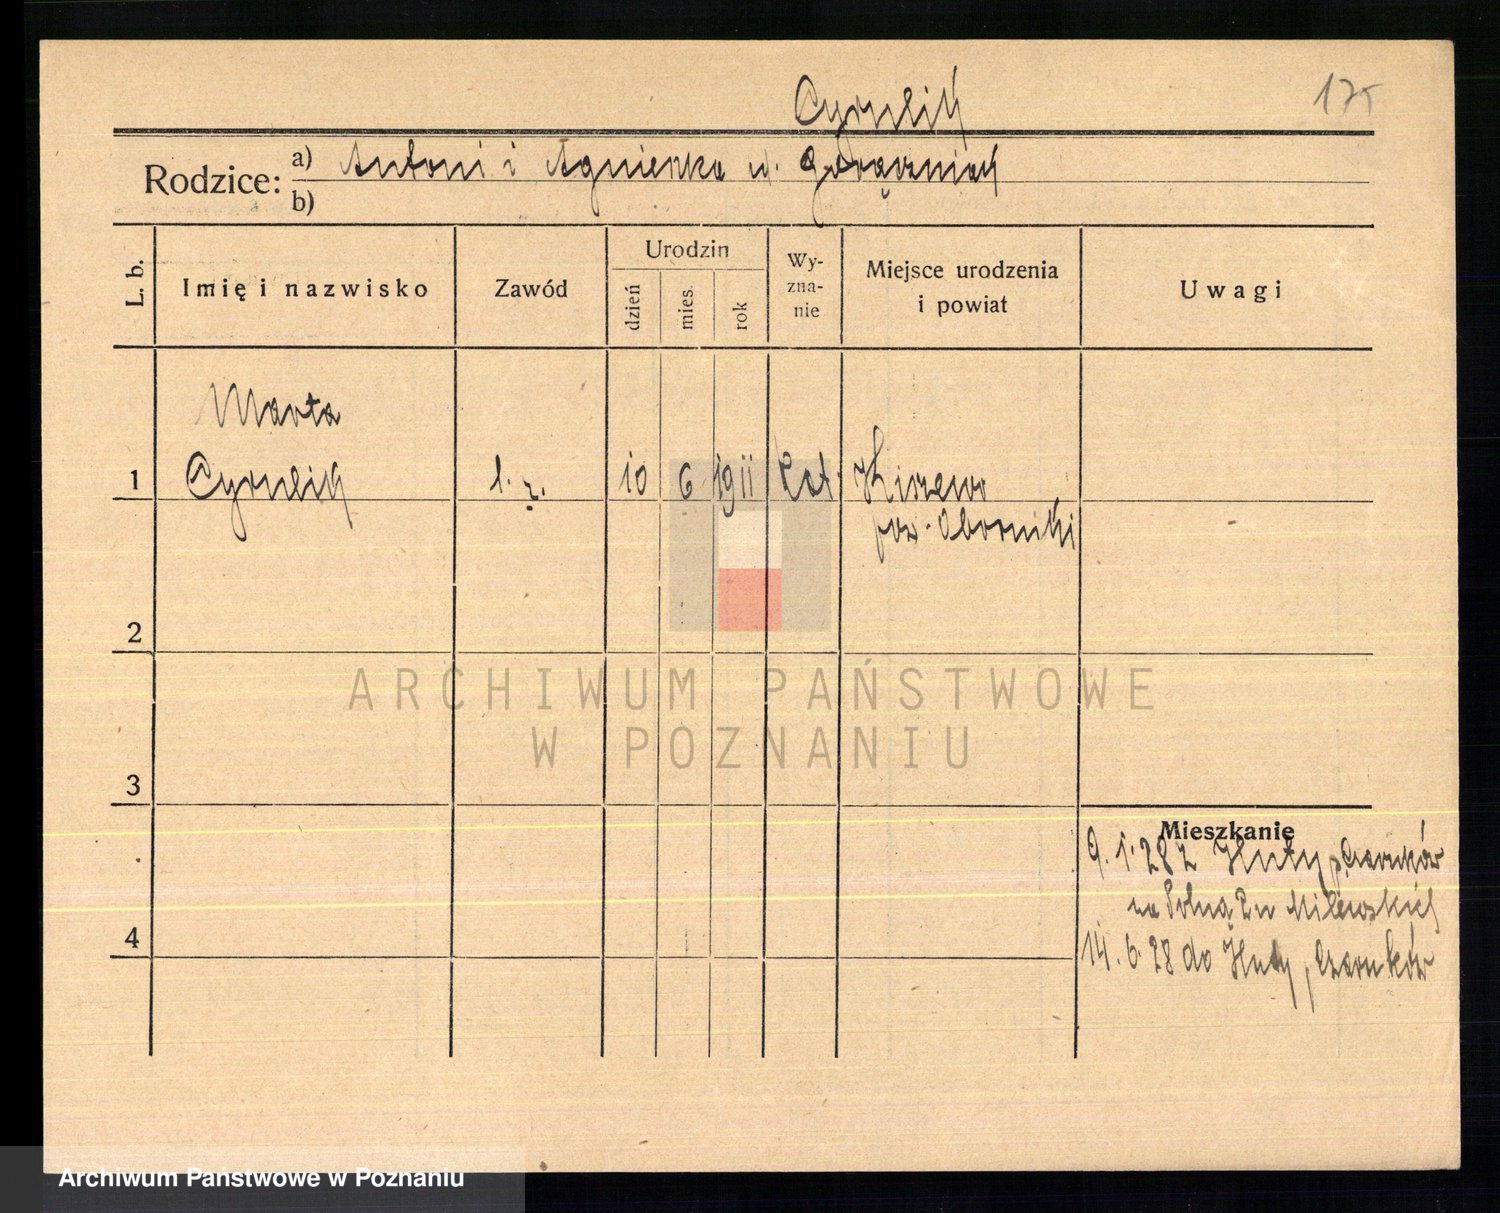 Cyrulik
175
Rodzice:
a) Antoni i Agnieszka u.
b)
L. b.
Imię i nazwisko
Zawód
Urodzin
dzień
mies.
rok
Wy-
zna-
nie
Miejsce urodzenia
i powiat
Uwagi
Marta
1 Cyrulik b. z. 10 6 1911 kat. Kiszewo
pow. Oborniki
2
ARCHIWUM PAŃSTWOWE
W POZNANIU
3
Mieszkanie
9. 1. 28 z Huty p. Czarnków
na Polną Milewskich
4
14. 6. 28 do Huty, Czarnków
Archiwum Państwowe w Poznaniu